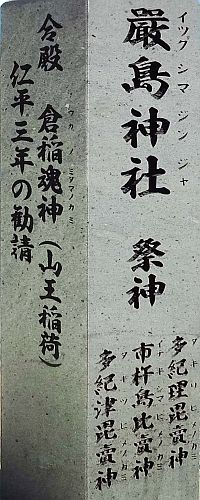 イツクシマジンジャ
厳島神社 祭神
タキリヒメノカミ
多紀理毘賣神
イチキシマヒメノカミ
市杵島比賣神
タキツヒメノカミ
多紀津毘賣神
ワカノミタマノカミ
合殿 倉稲魂神(山王稲荷)
仁平三年の勧請